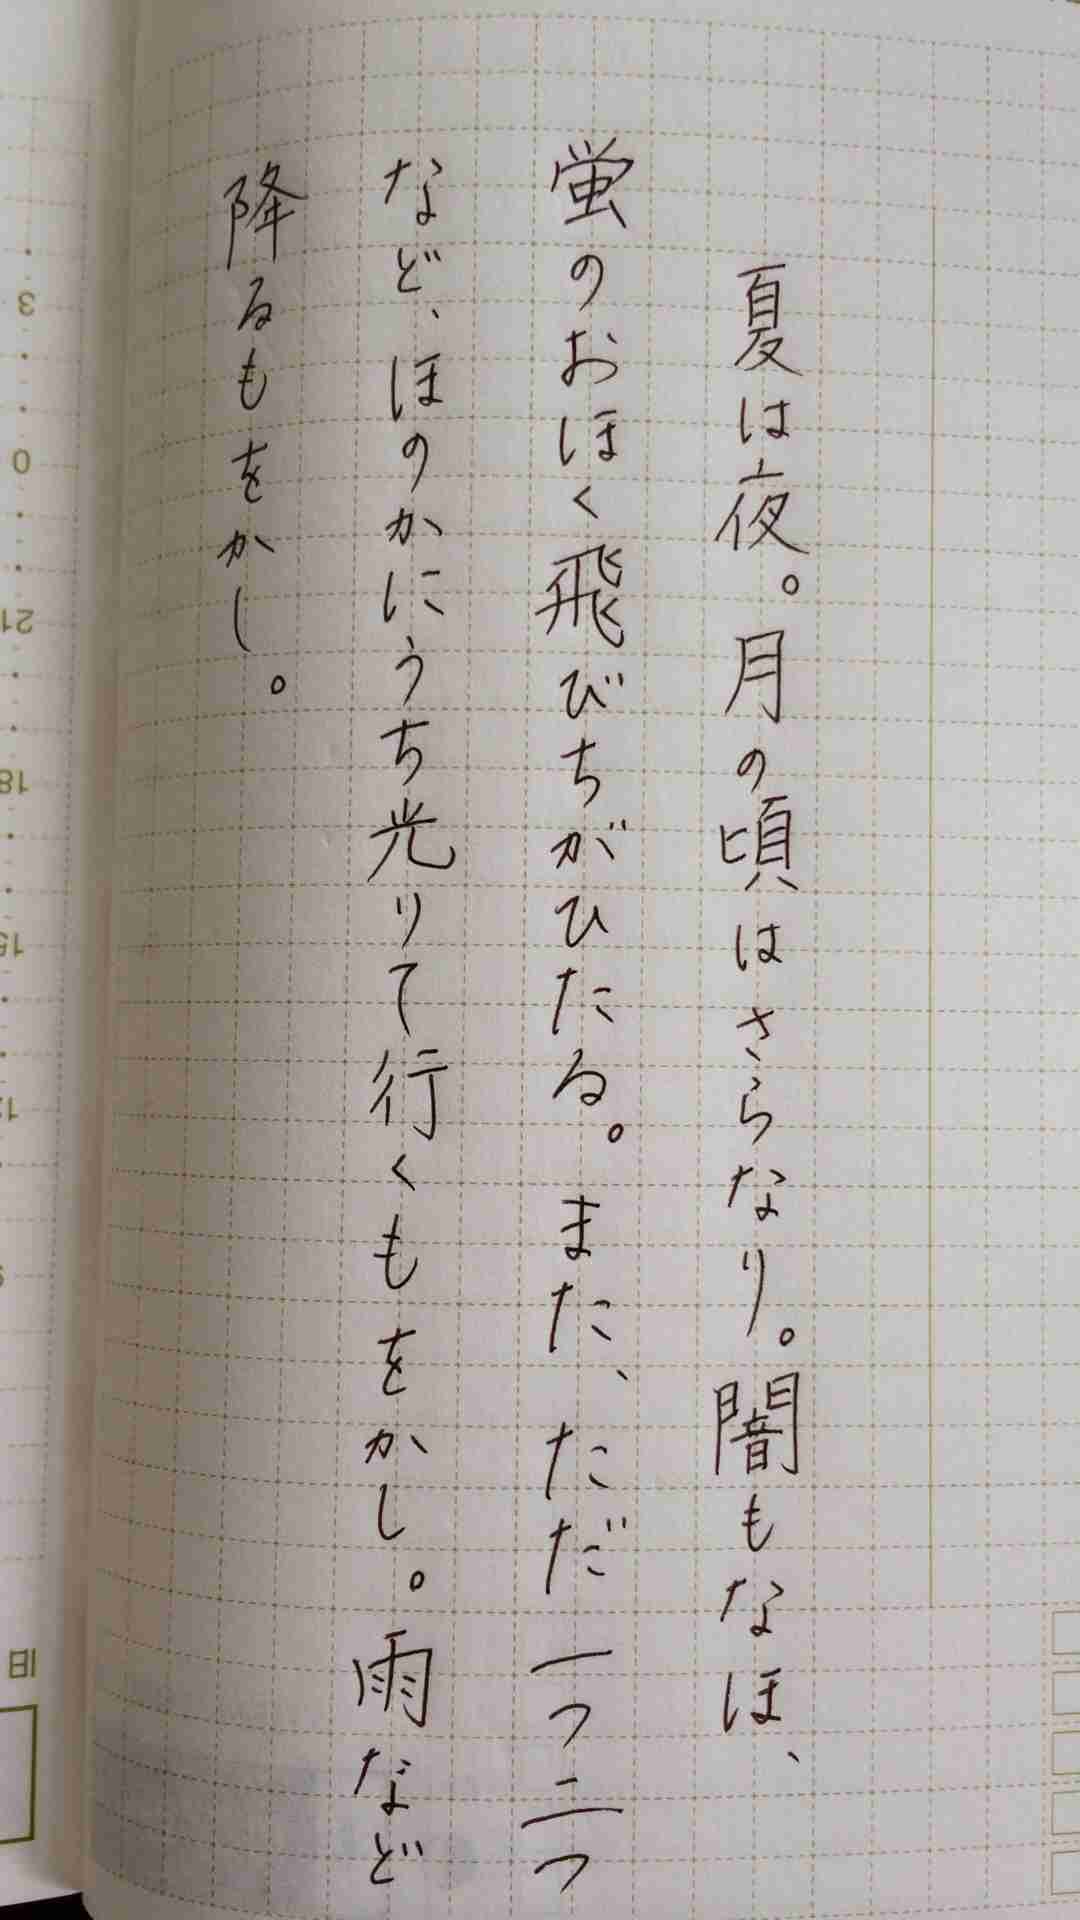 夏は夜。月の頃はさらなり。闇もなほ、
蛍のおほく飛びちがひたる。また、ただ一つ二つ
など、ほのかにうち光りて行くもをかし。雨など
降るもをかし。
3
0
21
18
15
旧